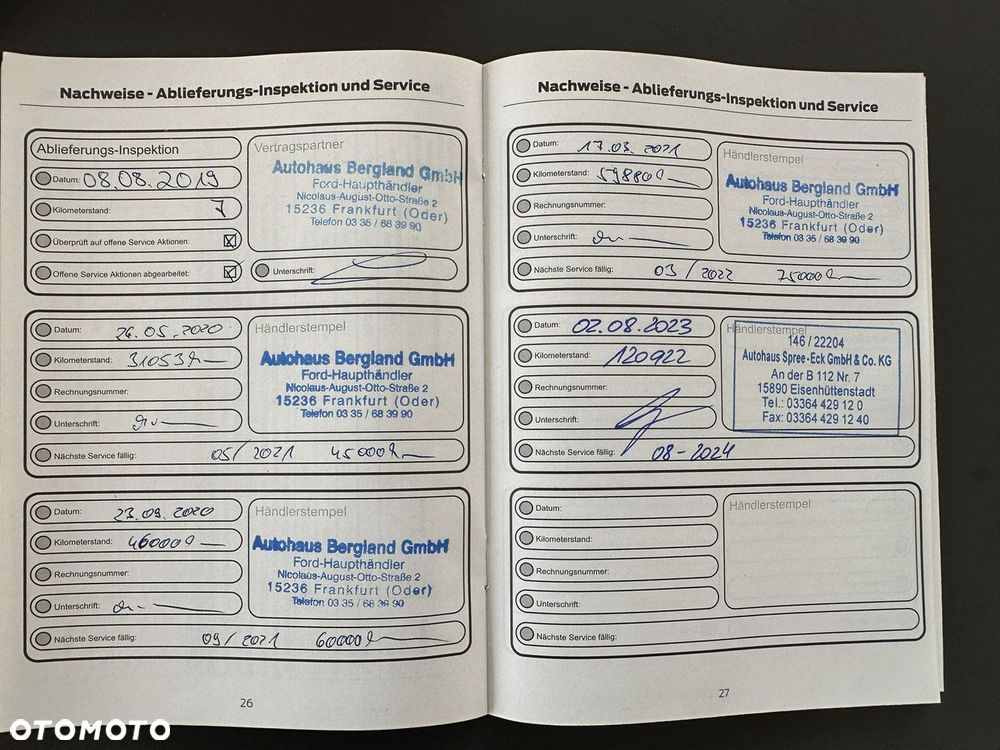 Nachweise - Ablieferungs-Inspektion und Service
Ablieferungs-Inspektion
Datum: 08.08.2019
Kilometerstand: 7
Überprüft auf offene Service Aktionen: ☒
Offene Service Aktionen abgearbeitet: ☒
Vertragspartner
Autohaus Bergland GmbH
Ford-Haupthändler
Nicolaus-August-Otto-Straße 2
15236 Frankfurt (Oder)
Telefon 03 35 / 68 39 90
Unterschrift:
Datum: 26.05.2020
Kilometerstand: 31053
Rechnungsnummer:
Unterschrift:
Händlerstempel
Autohaus Bergland GmbH
Ford-Haupthändler
Nicolaus-August-Otto-Straße 2
15236 Frankfurt (Oder)
Telefon 03 35 / 68 39 90
Nächste Service fällig: 05/2021 45000
Datum: 23.09.2020
Kilometerstand: 46000
Rechnungsnummer:
Unterschrift:
Händlerstempel
Autohaus Bergland GmbH
Ford-Haupthändler
Nicolaus-August-Otto-Straße 2
15236 Frankfurt (Oder)
Telefon 03 35 / 68 39 90
Nächste Service fällig: 09/2021 60000
26
Nachweise - Ablieferungs-Inspektion und Service
Datum: 17.03.2021
Kilometerstand: 59880
Rechnungsnummer:
Unterschrift:
Händlerstempel
Autohaus Bergland GmbH
Ford-Haupthändler
Nicolaus-August-Otto-Straße 2
15236 Frankfurt (Oder)
Telefon 03 35 / 68 39 90
Nächste Service fällig: 03/2022 75000
Datum: 02.08.2023
Kilometerstand: 120922
Rechnungsnummer:
Unterschrift:
Händlerstempel
146 / 22204
Autohaus Spree-Eck GmbH & Co. KG
An der B 112 Nr. 7
15890 Eisenhüttenstadt
Tel.: 03364 429 12 0
Fax: 03364 429 12 40
Nächste Service fällig: 08-2024
Datum:
Kilometerstand:
Rechnungsnummer:
Unterschrift:
Händlerstempel
Nächste Service fällig:
27
OTOMOTO